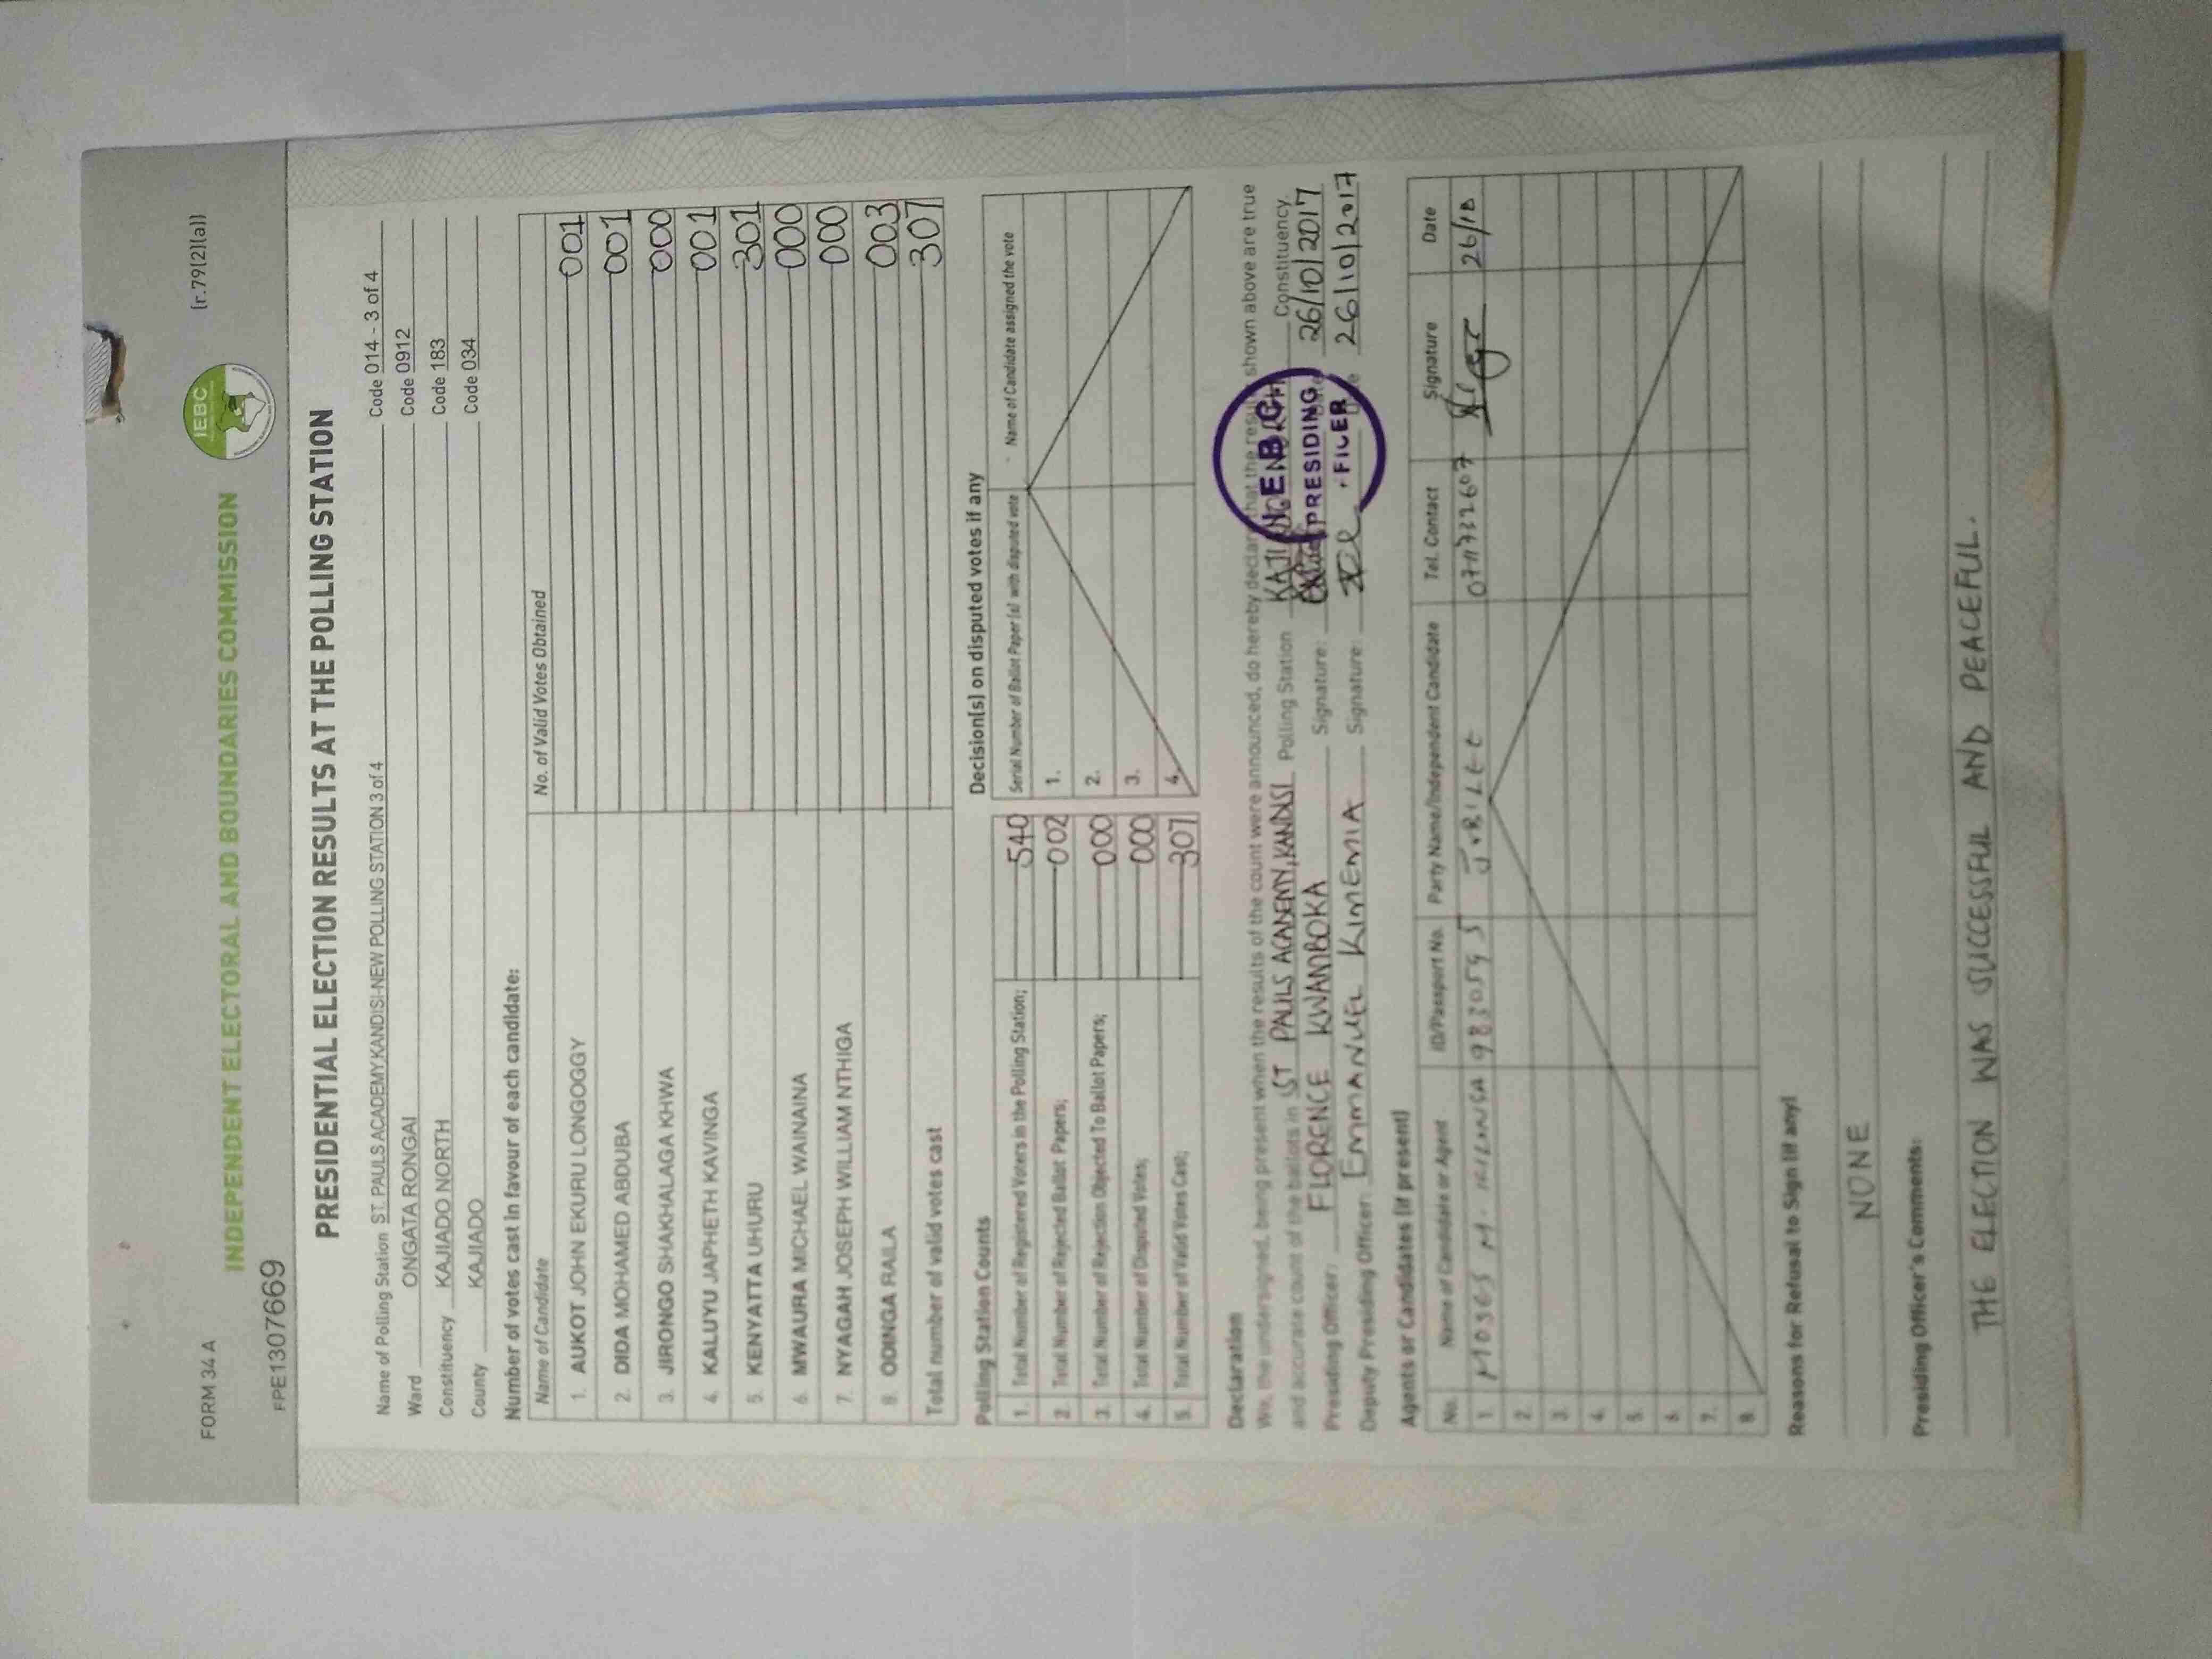 FORM 34 A
[r.79(2)(a)]
IEBC
INDEPENDENT ELECTORAL AND BOUNDARIES COMMISSION
FPE1307669
PRESIDENTIAL ELECTION RESULTS AT THE POLLING STATION
Name of Polling Station ST. PAULS ACADEMY,KANDISI-NEW POLLING STATION 3 of 4 Code 014 - 3 of 4
Ward ONGATA RONGAI Code 0912
Constituency KAJIADO NORTH Code 183
County KAJIADO Code 034
Number of votes cast in favour of each candidate:
Name of Candidate No. of Valid Votes Obtained
1. AUKOT JOHN EKURU LONGOGGY 001
2. DIDA MOHAMED ABDUBA 001
3. JIRONGO SHAKHALAGA KHWA 000
4. KALUYU JAPHETH KAVINGA 001
5. KENYATTA UHURU 301
6. MWAURA MICHAEL WAINAINA 000
7. NYAGAH JOSEPH WILLIAM NTHIGA 000
8. ODINGA RAILA 003
Total number of valid votes cast 307
Polling Station Counts
1. Total Number of Registered Voters in the Polling Station; 540
2. Total Number of Rejected Ballot Papers; 002
3. Total Number of Rejection Objected To Ballot Papers; 000
4. Total Number of Disputed Votes; 000
5. Total Number of Valid Votes Cast; 307
Decision(s) on disputed votes if any
Serial Number of Ballot Paper (s) with disputed vote Name of Candidate assigned the vote
1.
2.
3.
4.
Declaration
We, the undersigned, being present when the results of the count were announced, do hereby declare that the results shown above are true
and accurate count of the ballots in ST PAULS ACADEMY, KANDISI Polling Station Constituency.
Presiding Officer: FLORENCE KWAMBOKA Signature: 26/10/2017
Deputy Presiding Officer: EMMANUEL KIMEMIA Signature: 26/10/2017
IEBC
PRESIDING
OFFICER
Agents or Candidates (if present)
No. Name of Candidate or Agent ID/Passport No. Party Name/Independent Candidate Tel. Contact Signature Date
1. MOSES M. JUBILEE 26/10
2.
3.
4.
5.
6.
7.
8.
Reasons for Refusal to Sign (if any)
NONE
Presiding Officer's Comments:
THE ELECTION WAS SUCCESSFUL AND PEACEFUL.